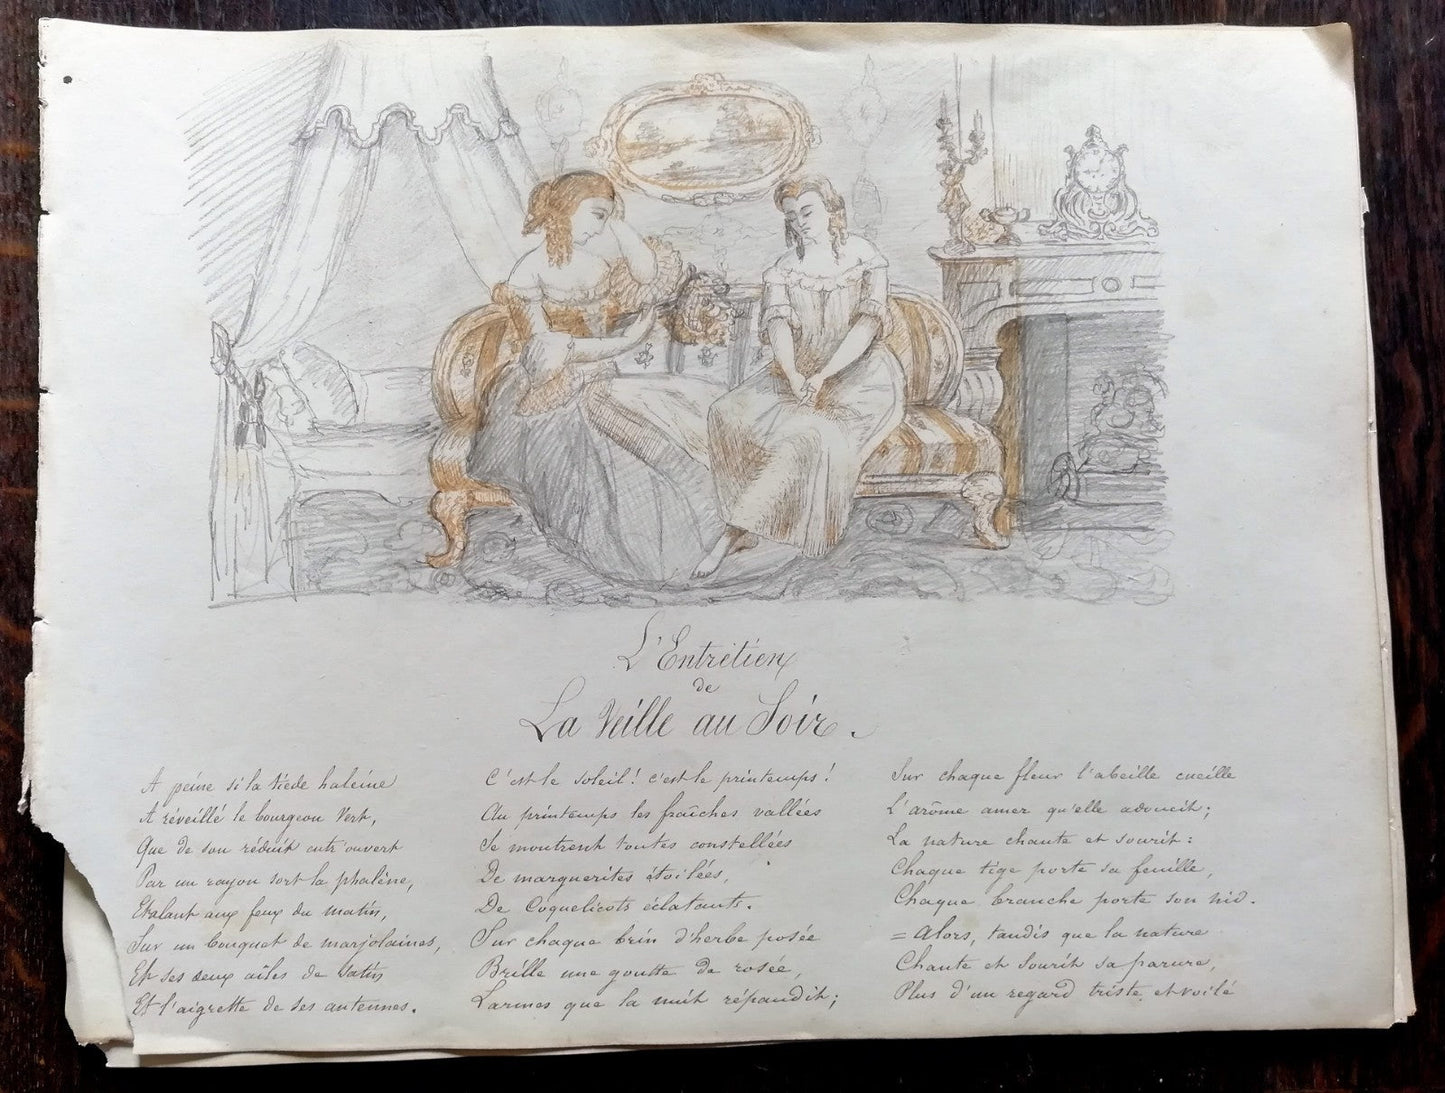 L'Entretien
de
La Veille au Soir.
A peine si la tiède haleine
A réveillé le bourgeon Vert,
Que de son réduit entr'ouvert
Par un rayon sort la phalène,
Etalant aux feux du matin,
Sur un bouquet de marjolaines,
Et ses deux aîles de Satin
Et l'aigrette de ses antennes.
C'est le soleil! c'est le printemps!
Au printemps les fraîches vallées
Se montrent toutes constellées
De marguerites étoilées,
De Coquelicots éclatants.
Sur chaque brin d'herbe posée
Brille une goutte de rosée,
Larmes que la nuit répandit;
Sur chaque fleur l'abeille cueille
L'arôme amer qu'elle adoucit;
La nature chante et sourit:
Chaque tige porte sa feuille,
Chaque branche porte son nid.
= Alors, tandis que la nature
Chante et Sourit sa parure,
Plus d'un regard triste et voilé